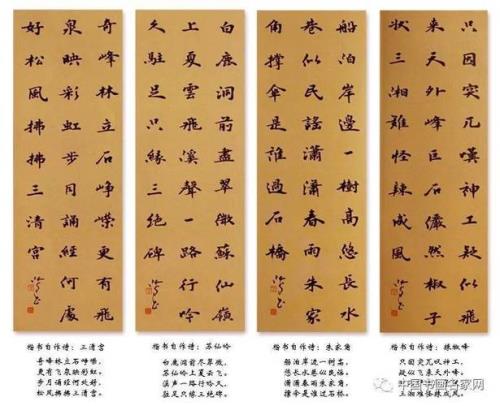 奇峰林立石崢嶸更有飛
泉映彩虹步月誦經何處
好松風拂拂三清宮
白鹿洞前盡翠微蘇仙嶺
上夏雲飛溪聲一路行吟
久駐足只緣三絕碑
船泊岸邊一樹高悠長水
巷似民謠瀟瀟春雨朱家
角撐傘是誰過石橋
只因突兀嘆神工疑似飛
來天外峰巨石儼然椒子
狀三湘難怪辣成風
楷书自作诗：三清宫
奇峰林立石峥嵘，
更有飞泉映彩虹。
步月诵经何处好，
松风拂拂三清宫。
楷书自作诗：苏仙岭
白鹿洞前尽翠微，
苏仙岭上夏云飞。
溪声一路行吟久，
驻足只缘三绝碑。
楷书自作诗：朱家角
船泊岸边一树高，
悠长水巷似民谣。
潇潇春雨朱家角，
撑伞是谁过石桥。
楷书自作诗：辣椒峰
只因突兀叹神工，
疑似飞来天外峰。
巨石俨然椒子状，
三湘难怪辣成风。
中国书画名家网